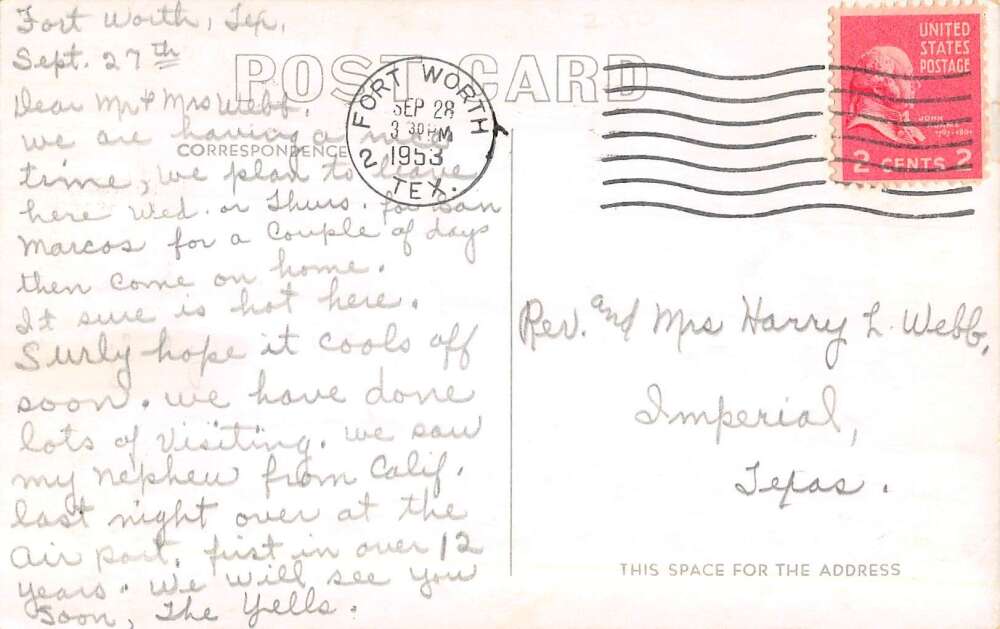 Fort Worth, Tex,
Sept. 27th
POST CARD
Dear Mr & Mrs Webb,
we are having a nice
CORRESPONDENCE
time, we plan to leave
here Wed. or Thurs. for San
Marcos for a couple of days
then come on home.
It sure is hot here.
Surly hope it cools off
soon. we have done
lots of visiting. we saw
my nephew from Calif.
last night over at the
air port. first in over 12
years. We will see you
soon, The Yells.
FORT WORTH
SEP 28
3 30 PM
1953
2
TEX.
UNITED
STATES
POSTAGE
JOHN
ADAMS
2 CENTS 2
Rev. and Mrs Harry L. Webb,
Imperial,
Texas.
THIS SPACE FOR THE ADDRESS